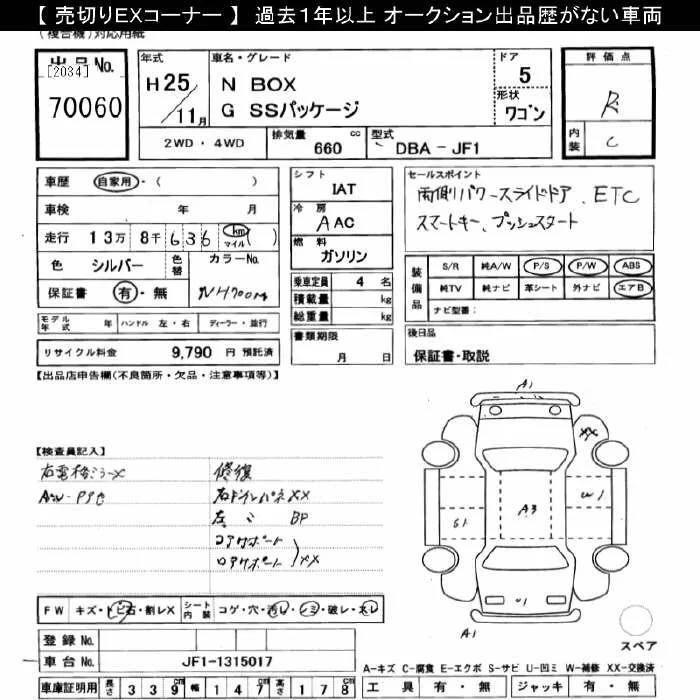 【 売切りEXコーナー 】 過去1年以上 オークション出品歴がない車両
(複合機)対応用紙
出品No.
[2034]
70060
年式
H25/11月
車名・グレード
N BOX
G SSパッケージ
ドア
5
形状
ワゴン
評価点
R
内装
C
2WD ・ 4WD
排気量 660 cc
型式 DBA - JF1
車歴 自家用・( )
車検 年 月
走行 13万 8千 636 km マイル ( )
色 シルバー
色替
カラーNo.
NH700M
保証書 有・無
モデル年式 年 ハンドル 左・右 ディーラー・並行
リサイクル料金 9,790 円 預託済
シフト
IAT
冷房
A AC
燃料
ガソリン
乗車定員 4 名
積載量 kg
総重量 kg
書類期限
月 日
セールスポイント
両側パワースライドドア、ETC
スマートキー、プッシュスタート
装備品
S/R 純A/W P/S P/W ABS
純TV 純ナビ 革シート 外ナビ エアB
ナビ型番:
後日品
保証書・取説
【出品店申告欄(不良箇所・欠品・注意事項等)】
【検査員記入】
修復
コアサポート
ロアサポート
XX
BP
XX
FW キズ・トビ石・割レX
シート内装 コゲ・穴・汚レ・シミ・破レ・スレ
登録 No.
車台 No. JF1-1315017
車庫証明用 長さ 339cm 幅 147cm 高さ 178cm
A1
XX
W1
A3
S1
U1
A1
スペア
A-キズ C-腐食 E-エクボ S-サビ U-凹ミ W-補修 XX-交換済
工具 有・無 ジャッキ 有・無